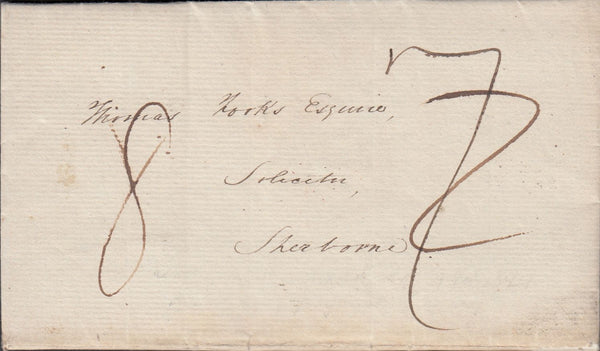 Thomas Fooks Esquire,
Solicitor,
Sherborne
8